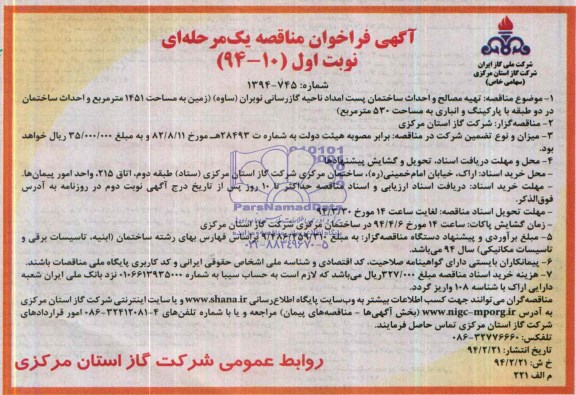 آگهی فراخوان مناقصه یک‌مرحله‌ای
نوبت اول (۱۰-۹۴)
شرکت ملی گاز ایران
شرکت گاز استان مرکزی
(سهامی خاص)
شماره: ۷۴۵-۱۳۹۴
۱- موضوع مناقصه: تهیه مصالح و احداث ساختمان پست امداد ناحیه گازرسانی نوبران (ساوه) (زمین به مساحت ۱۴۵۱ مترمربع و احداث ساختمان
در دو طبقه با پارکینگ و انباری به مساحت ۵۳۰ مترمربع)
۲- مناقصه‌گزار: شرکت گاز استان مرکزی
۳- میزان و نوع تضمین شرکت در مناقصه: برابر مصوبه هیئت دولت به شماره ت ۲۸۴۹۳هـ مورخ ۸۲/۸/۱۱ و به مبلغ ۳۵/۰۰۰/۰۰۰ ریال خواهد
بود.
۴- محل و مهلت دریافت اسناد، تحویل و گشایش پیشنهادها
- محل خرید اسناد: اراک، خیابان امام‌خمینی(ره)، ساختمان مرکزی شرکت گاز استان مرکزی (ستاد) طبقه دوم، اتاق ۲۱۵، واحد امور پیمان‌ها.
- مهلت خرید اسناد: دریافت اسناد ارزیابی و اسناد مناقصه حداکثر تا ۱۰ روز پس از تاریخ درج آگهی نوبت دوم در روزنامه به آدرس
فوق‌الذکر.
- مهلت تحویل اسناد مناقصه: لغایت ساعت ۱۴ مورخ
- زمان گشایش پاکات: ساعت ۱۴ مورخ ۹۴/۴/۶ در ساختمان مرکزی شرکت گاز استان مرکزی
۵- مبلغ برآوردی و پیشنهاد دستگاه مناقصه‌گزار: به مبلغ براساس فهارس بهای رشته ساختمان (ابنیه، تاسیسات برقی و
تاسیسات مکانیکی) سال ۹۴ می‌باشد.
۶- پیمانکاران بایستی دارای گواهینامه صلاحیت، کد اقتصادی و شناسه ملی اشخاص حقوقی ایرانی و کد کاربری پایگاه ملی مناقصات باشند.
۷- هزینه خرید اسناد مناقصه مبلغ ۳۲۷/۰۰۰ریال می‌باشد که لازم است به حساب سیبا به شماره ۰۱۰۶۶۱۳۹۳۵۰۰۰ نزد بانک ملی ایران شعبه
دارایی اراک با شناسه ۱۰۸ واریز گردد.
مناقصه‌گران می‌توانند جهت کسب اطلاعات بیشتر به وب‌سایت پایگاه اطلاع‌رسانی www.shana.ir و یا سایت اینترنتی شرکت گاز استان مرکزی
به آدرس www.nigc-mporg.ir (بخش آگهی‌ها - مناقصه‌های پیمان) مراجعه و یا با شماره تلفن‌های ۴-۳۲۴۱۲۰۸۱-۰۸۶ امور قراردادهای
شرکت گاز استان مرکزی تماس حاصل فرمایند.
تلفکس: ۳۲۷۷۶۶۶۰-۰۸۶
تاریخ انتشار: ۹۴/۲/۲۱
خ ش: ۹۴/۲/۲۱
م الف ۲۲۱
روابط عمومی شرکت گاز استان مرکزی
ParsNamadData
۰۲۱-۸۸۳۴۹۶۷۰-۵